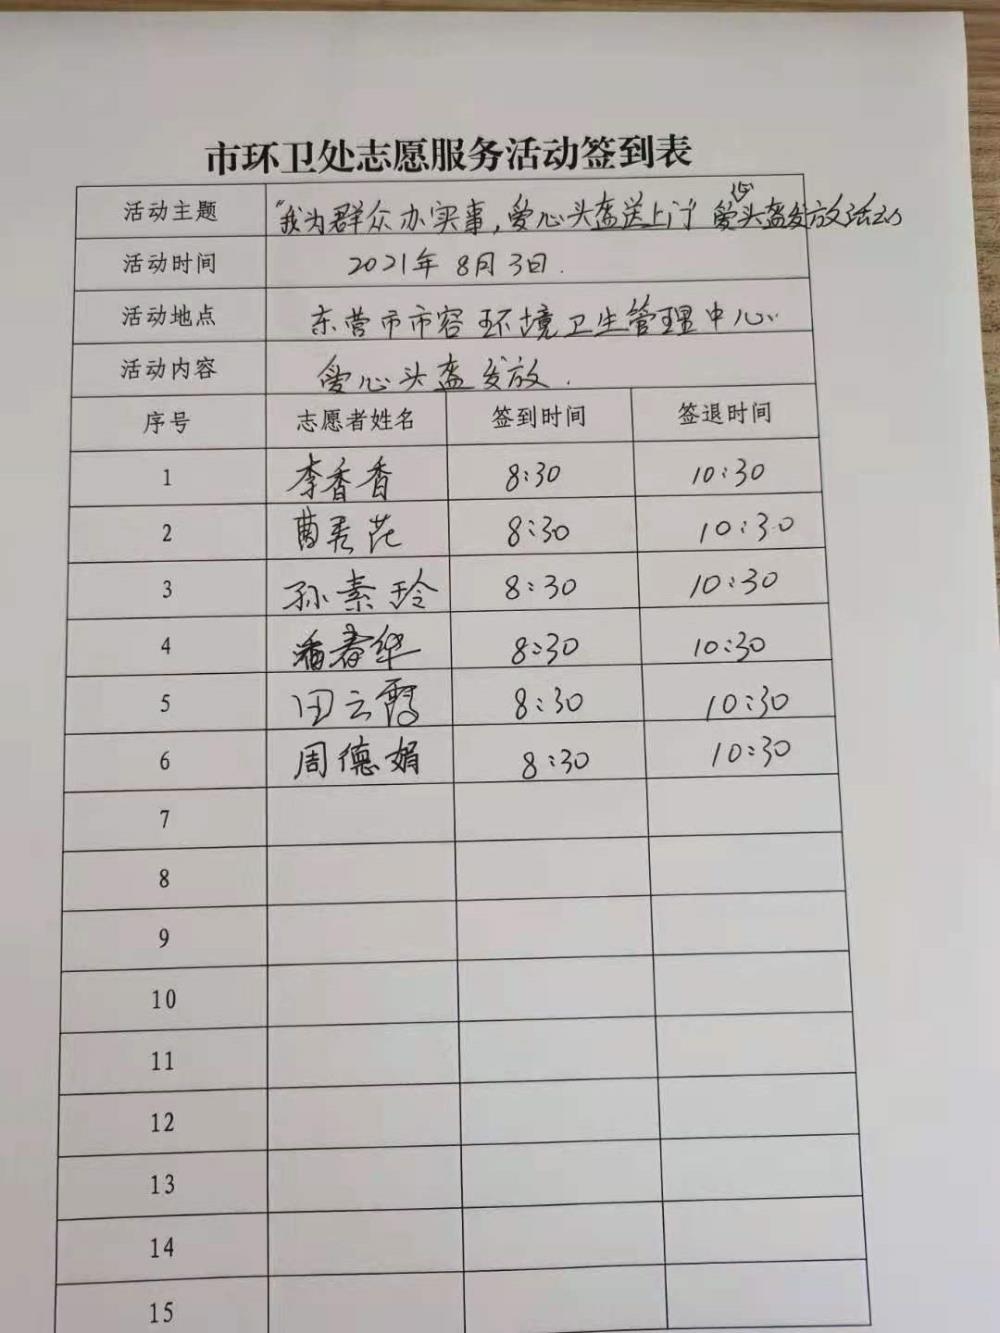 市环卫处志愿服务活动签到表
活动主题 "我为群众办实事,爱心头盔送上门"爱心头盔发放活动
活动时间 2021年8月3日.
活动地点 东营市市容环境卫生管理中心
活动内容 爱心头盔发放.
序号 志愿者姓名 签到时间 签退时间
1 李香香 8:30 10:30
2 曹秀花 8:30 10:30
3 孙素玲 8:30 10:30
4 潘春华 8:30 10:30
5 田云霞 8:30 10:30
6 周德娟 8:30 10:30
7
8
9
10
11
12
13
14
15